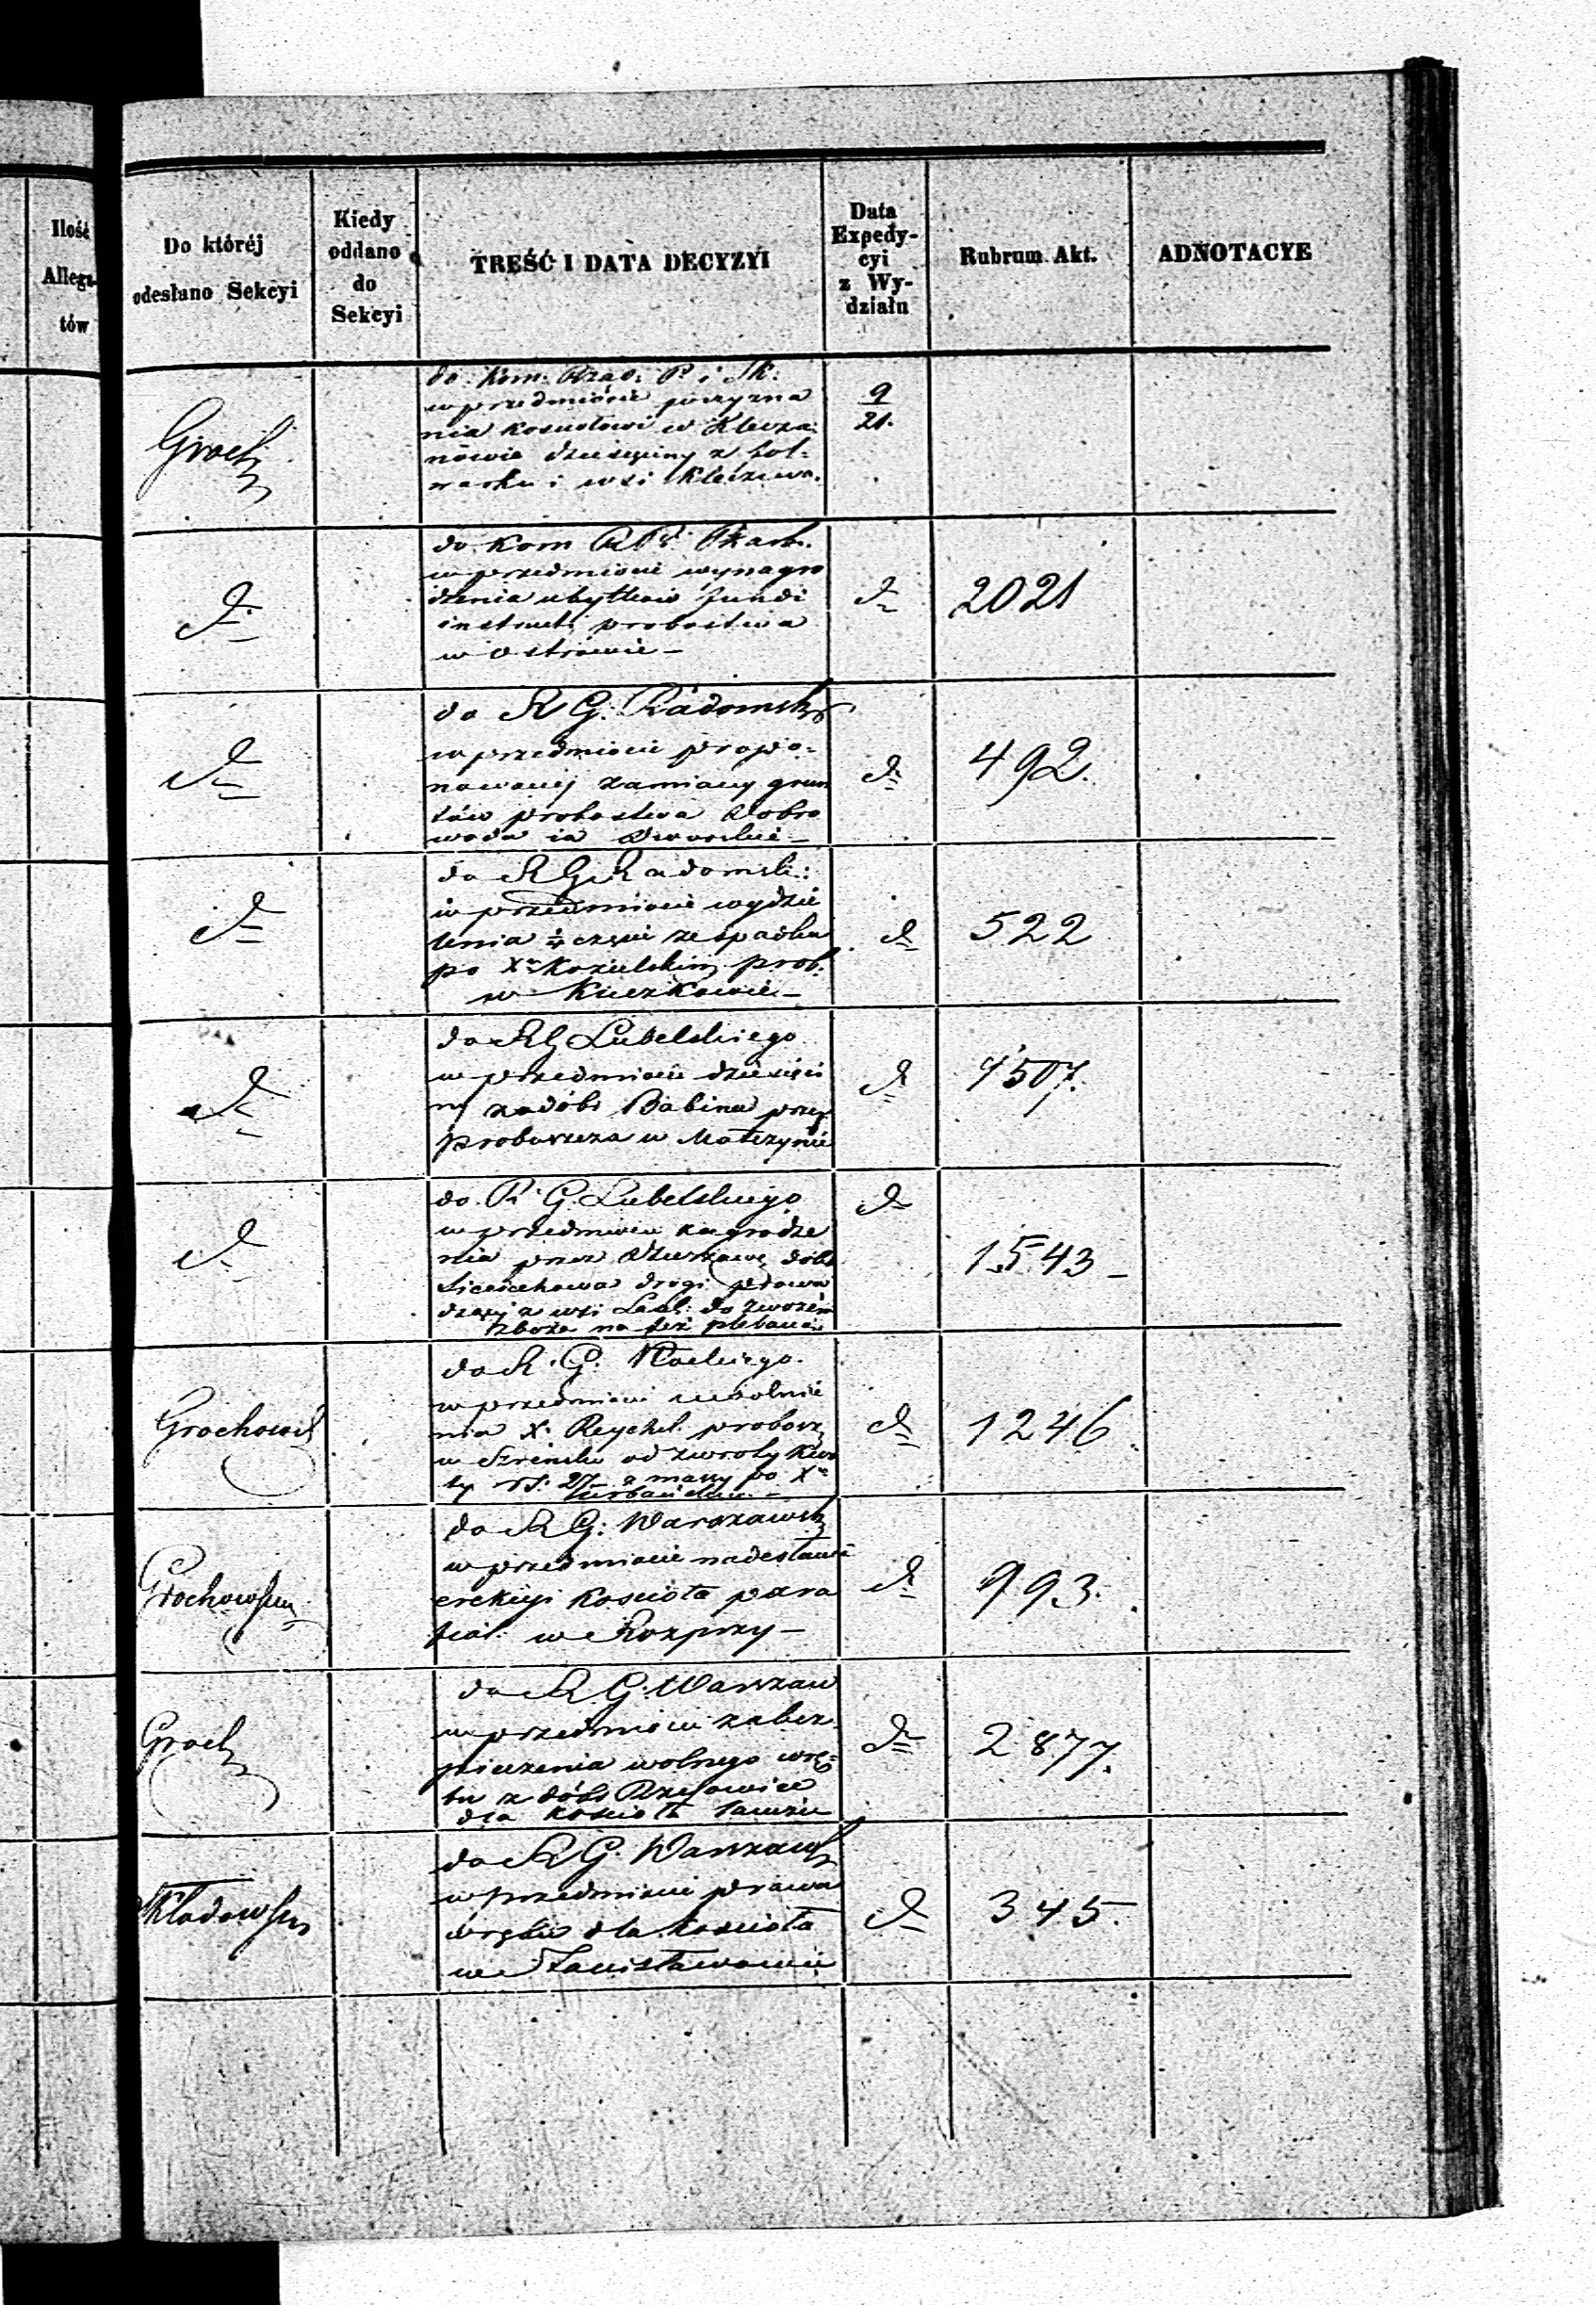 Ilość
Allega-
tów
Do któréj
odesłano Sekcyi
Kiedy
oddano
do
Sekcyi
TREŚĆ I DATA DECYZYI
Data
Expedy-
cyi
z Wy-
działu
Rubrum Akt.
ADNOTACYE
Groch
do Kom: Rząd: P. i Sk:
w przedmiocie przyzna
nia kościołowi w Klecza:
nowie dziesięciny z fol-
warku i wsi
9
21.
do Kom R. P. Skarb.
w przedmiocie wynagro
dzenia ubytków fundi
instructi probostwa
w Ostrowie –
2021
do R G. Radomsk
w przedmiocie propo-
nowanej zamiany grun
tów probostwa Dobro
woda za Dworskie –
492.
do R G Radomsk:
w przedmiocie wydzie
lenia ¼ części ze spadku
po X. Kozielskim prob:
w –
522
do RG Lubelskiego
w przedmiocie dziesięci
ny z dóbr Babina przez
proboszcza w Matczynie
1507.
do R. G. Lubelskiego
w przedmiocie zagrodze
nia przez Dzierżawcę dóbr
Sieciechowa drogi prowa
dzącej z wsi do zwozu
zboża na też plebanią
1543 –
Grochowsk
do R. G. Płockiego.
w przedmiocie uwolnie
nia X. Reychel proboszcz
w Szreńsku od zwrotu kwo
ty rs. 27 z massy po X
1246.
Grochowskiem
do R G: Warszawsk
w przedmiocie nadesłania
erekcyi kościoła para
fial: w Rozprzy –
993.
Groch
do R. G. Warszaw
w przedmiocie zabez
pieczenia wolnego wrę-
bu z dóbr
dla kościoła
2877.
Skłodowskiem
do R G. Warszaw
w przedmiocie prawa
wrębu dla kościoła
w Stanisławowie
345.